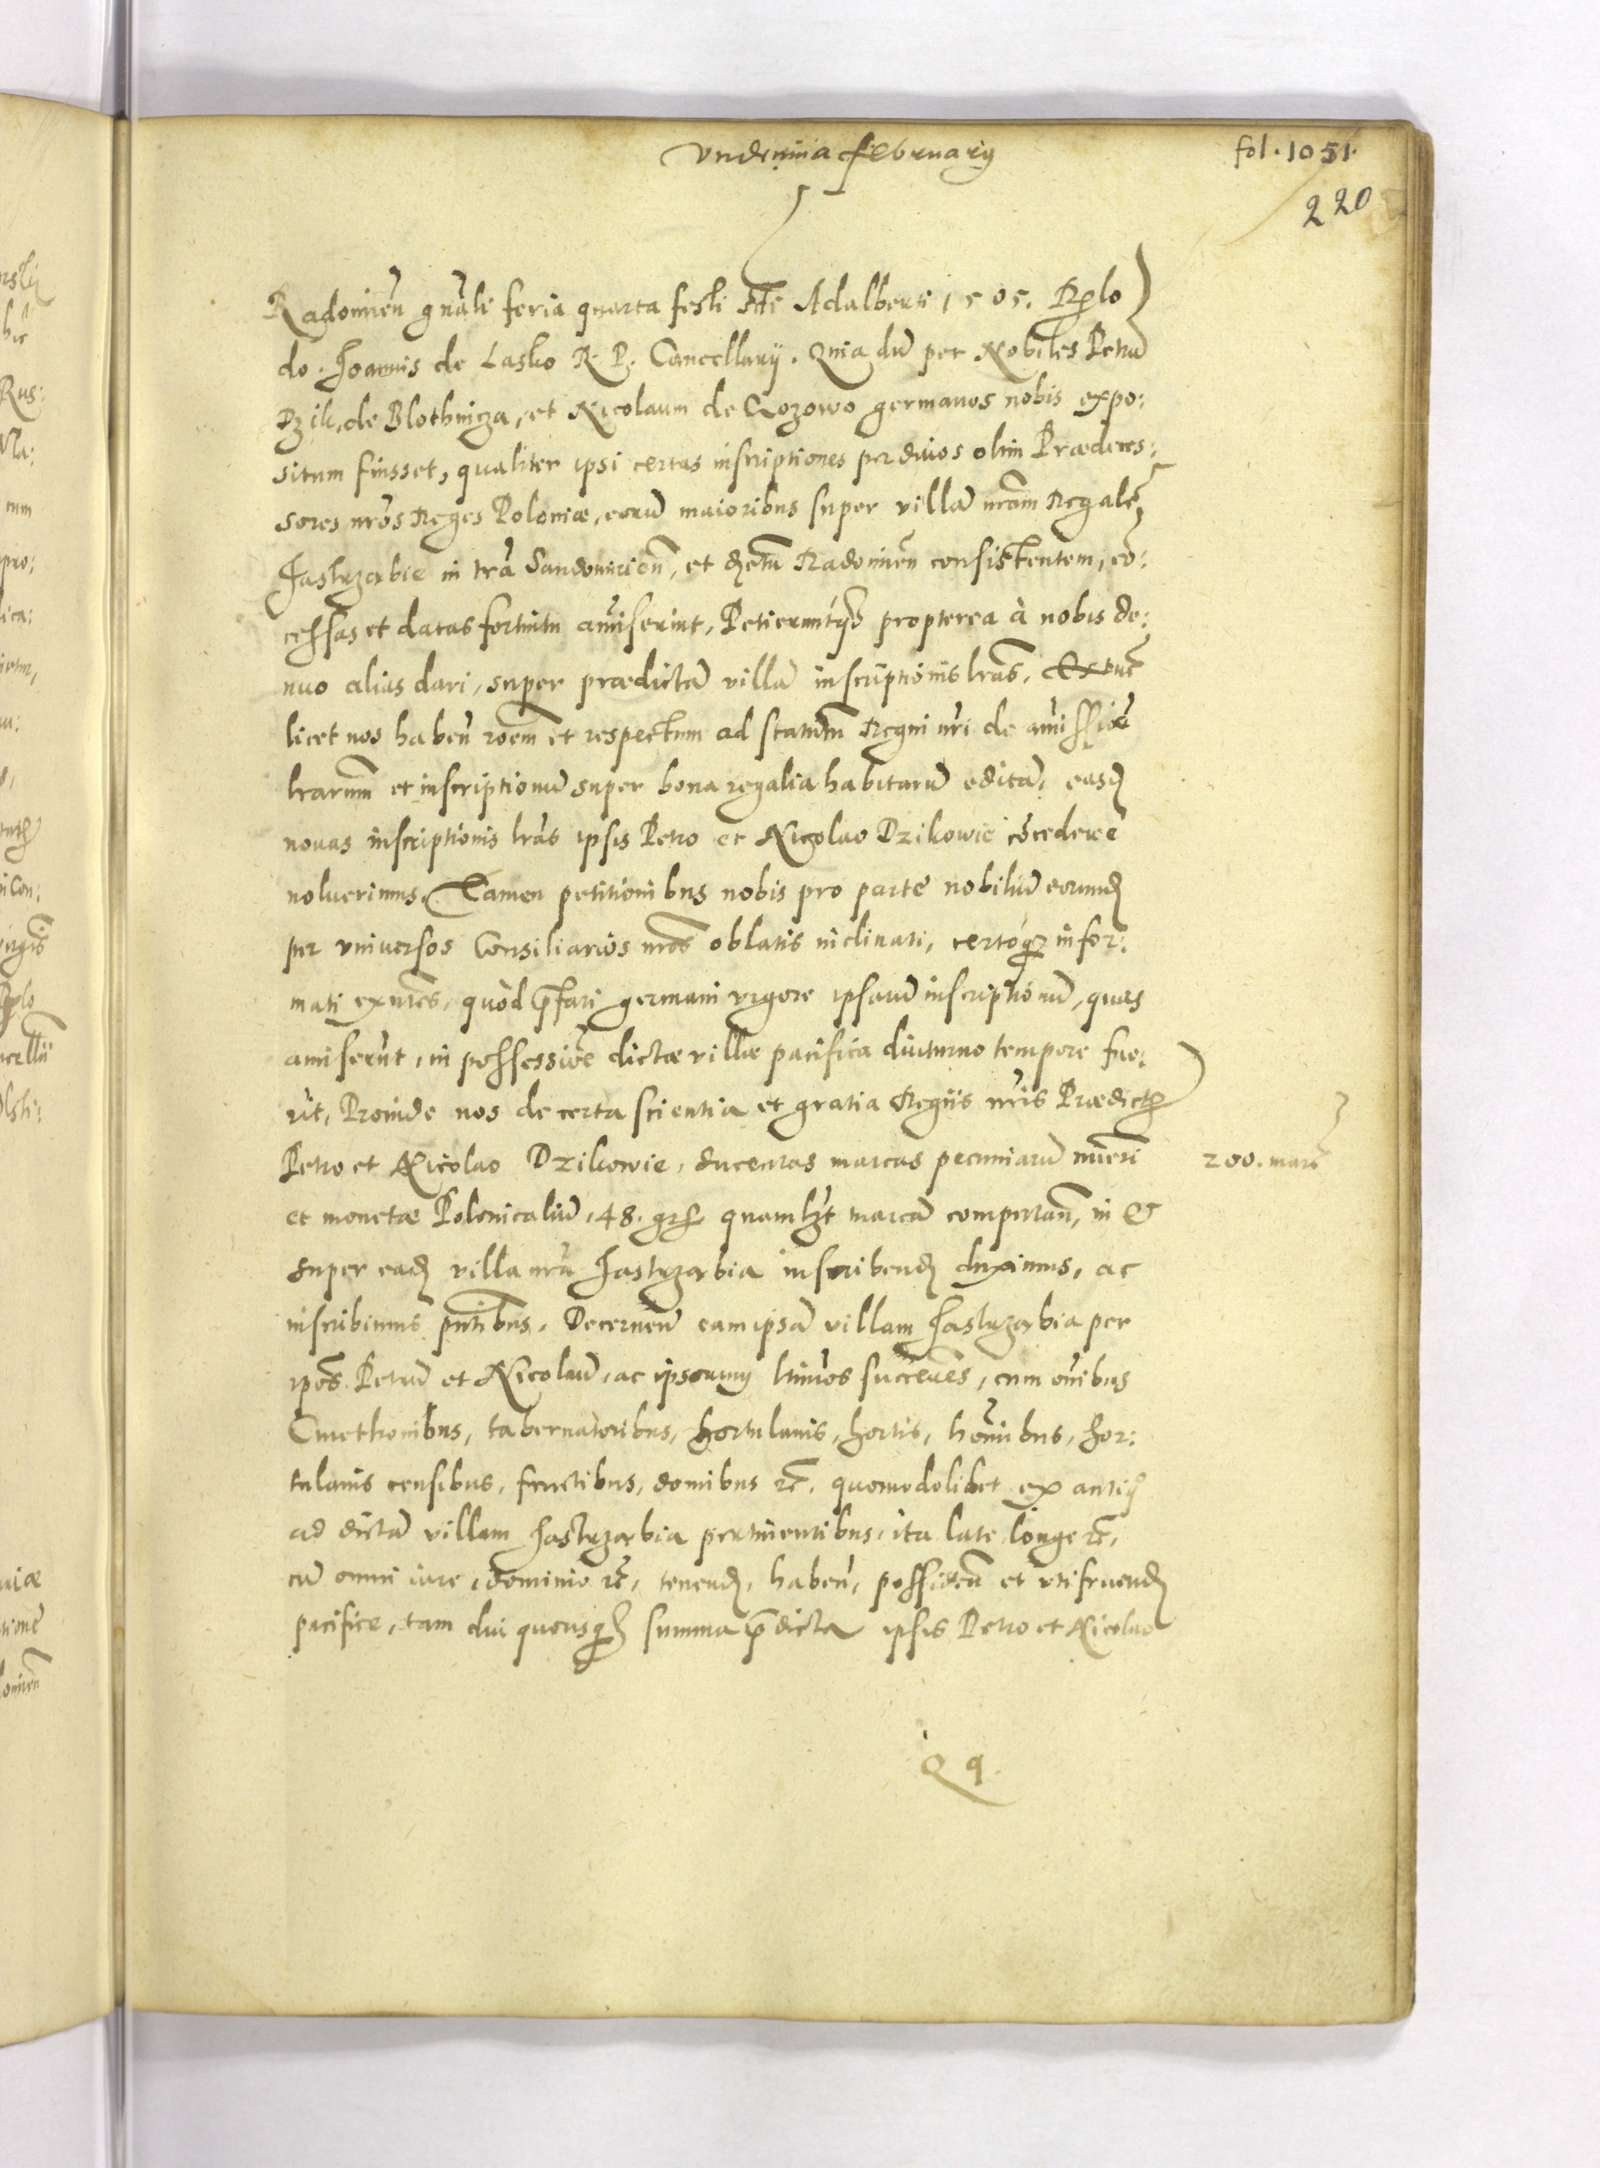 vndecima february
fol. 1051.
220
Radomien gnali feria quarta festi Sti Adalberti 1505. Rlo
do. Joannis de Lasko R. P. Cancellarij. Quia dū per Nobiles Petrū
Dzik, de Blothnicza, et Nicolaum de Cozowo germanos nobis expo:
situm fuisset, qualiter ipsi certas inscriptiones per diuos olim Prædeces:
sores nros Reges Poloniæ, eorū maioribus super villā nram Regalē
Jastrzabie in trā Sandomirien, et distu Radomien consistentem, cō:
cessas et datas fortuitu amiserint, Petieruntqz propterea à nobis de:
nuo alias dari, super prædictā villā inscriptionis lras, Et tūc
licet nos haben roem et respectum ad statutū Regni nri de amissiōe
lrarum et inscriptionū super bona regalia habitarū editū, easd
nouas inscriptionis lras ipsis Petro et Nicolao Dzikowie cōcedere
noluerimus. Tamen petitionibus nobis pro parte nobiliū eorund
per vniuersos Consiliarios nros oblatis inclinati, certoqz infor:
mati exntes, quòd pfati germani vigore ipsarū inscriptionū, quas
amiserūt, in possessiōe dictæ villæ pacifica diuturno tempore fue:
rūt, Proinde nos de certa scientia et gratia Regiis nris Prædict
Petro et Nicolao Dzikowie, ducentas marcas pecuniarū nūeri
200. marc
et monetæ Polonicaliū, 48. gr quamlzt marcā computan, in et
super ead villa nra Jastrzabia inscribend duximus, ac
inscribimus pntibus, Decernen eam ipsā villam Jastrzabia per
ipos Petrū et Nicolaū, ac ipsorum ltimos succes̄es, cum omibus
Cmethonibus, tabernatoribus, hortulanis, hortis, homibus, hor:
tulanis censibus, fructibus, domibus etc. quomodolibet ex antiq
ad dictā villam Jastrzabia pertinentibus, ita late longe etc,
cū omni iure, dominio etc, tenend, haben, possiden et vtifruend
pacifice, tam diu quousqz summa pdicta ipsis Petro et Nicolao
Q q.